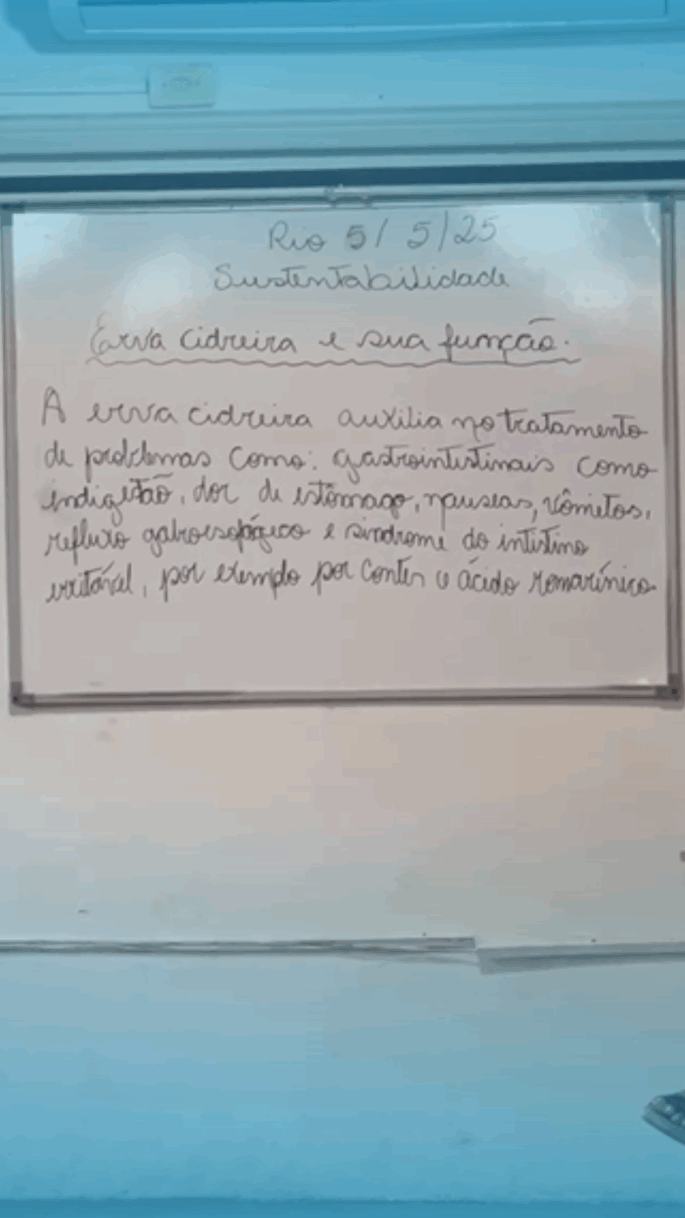 Rio 5/ 5/25
Sustentabilidade
Erva cidreira e sua função.
A erva cidreira auxilia no tratamento
de problemas como: gastrointestinais como
indigestão, dor de estômago, náuseas, vômitos,
refluxo gatroesofágico e síndrome do intistino
irritável, por exemplo por contér o ácido romarínico.